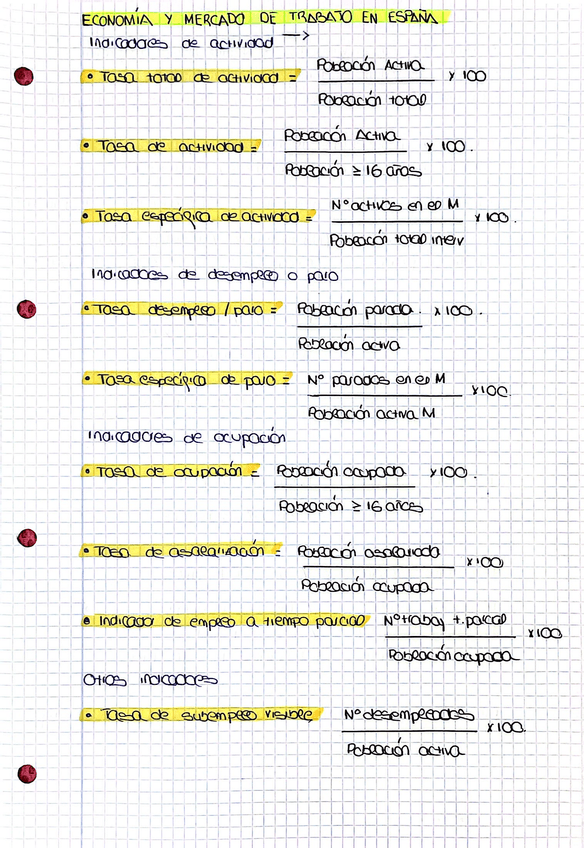 ECONOMÍA Y MERCADO DE TRABAJO EN ESPAÑA
Indicadores de actividad →
• Tasa total de actividad = Población Activa / Población total x 100
• Tasa de actividad = Población Activa / Población ≥ 16 años x 100.
• Tasa específica de actividad = Nº activos en el M / Población total interv x 100.
Indicadores de desempleo o paro
• Tasa desempleo / paro = Población parada / Población activa x 100.
• Tasa específica de paro = Nº parados en el M / Población activa M x 100.
Indicadores de ocupación
• Tasa de ocupación = Población ocupada / Población ≥ 16 años x 100.
• Tasa de asalarización = Población asalariada / Población ocupada x 100
• Indicador de empleo a tiempo parcial Nº trabaj t. parcial / Población ocupada x 100
Otros indicadores
• Tasa de subempleo visible Nº desempleados / Población activa x 100.